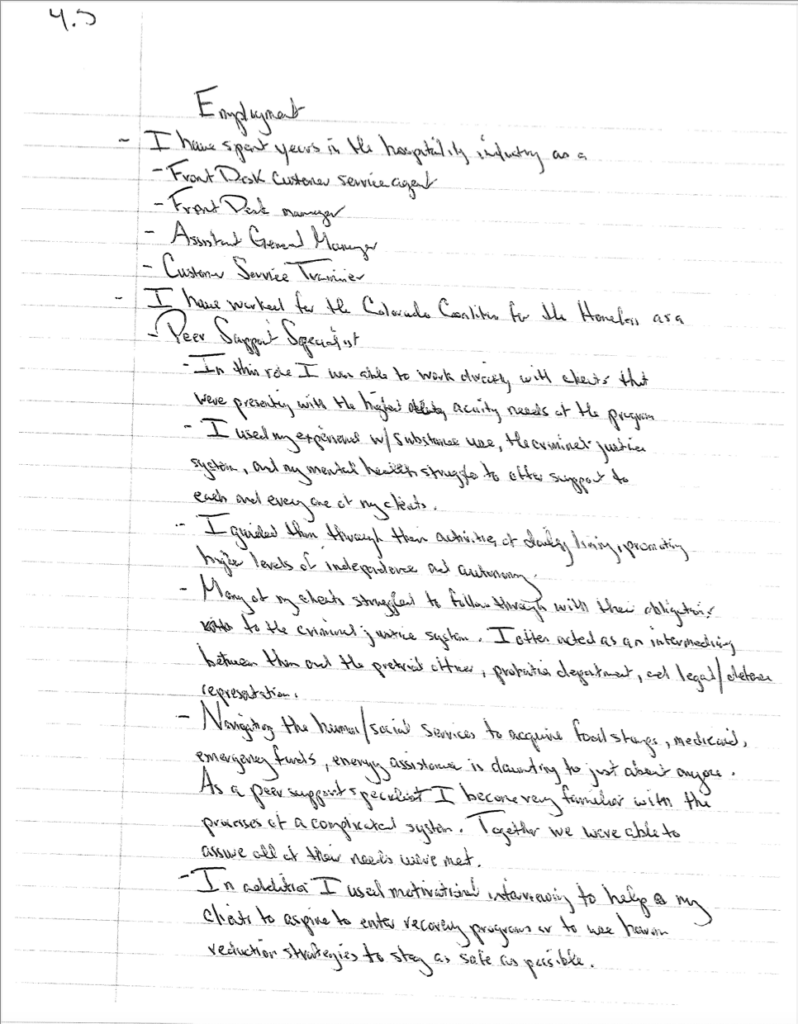 4.5
Employment
- I have spent years in the hospitality industry as a
- Front Desk Customer service agent
- Front Desk manager
- Assistant General Manager
- Customer Service Trainier
- I have worked for the Colorado Coalition for the Homeless as a
- Peer Support Specialist
- In this role I was able to work directly with clients that
were presenting with the highest acuity needs at the program
- I used my experience w/ substance use, the criminal justice
system, and my mental health struggle to offer support to
each and every one of my clients.
- I guided them through their activities of daily living, promoting
higher levels of independence and autonomy.
- Many of my clients struggled to follow through with their obligations
to the criminal justice system. I often acted as an intermediary
between them and the pretrial officer, probation department, and legal/defense
representation.
- Navigating the human/social services to acquire food stamps, medicaid,
emergency funds, energy assistance is daunting to just about anyone.
As a peer support specialist I became very familiar with the
processes of a complicated system. Together we were able to
assure all of their needs were met.
- In addition I used motivational interviewing to help my
clients to aspire to enter recovery programs or to use harm
reduction strategies to stay as safe as possible.